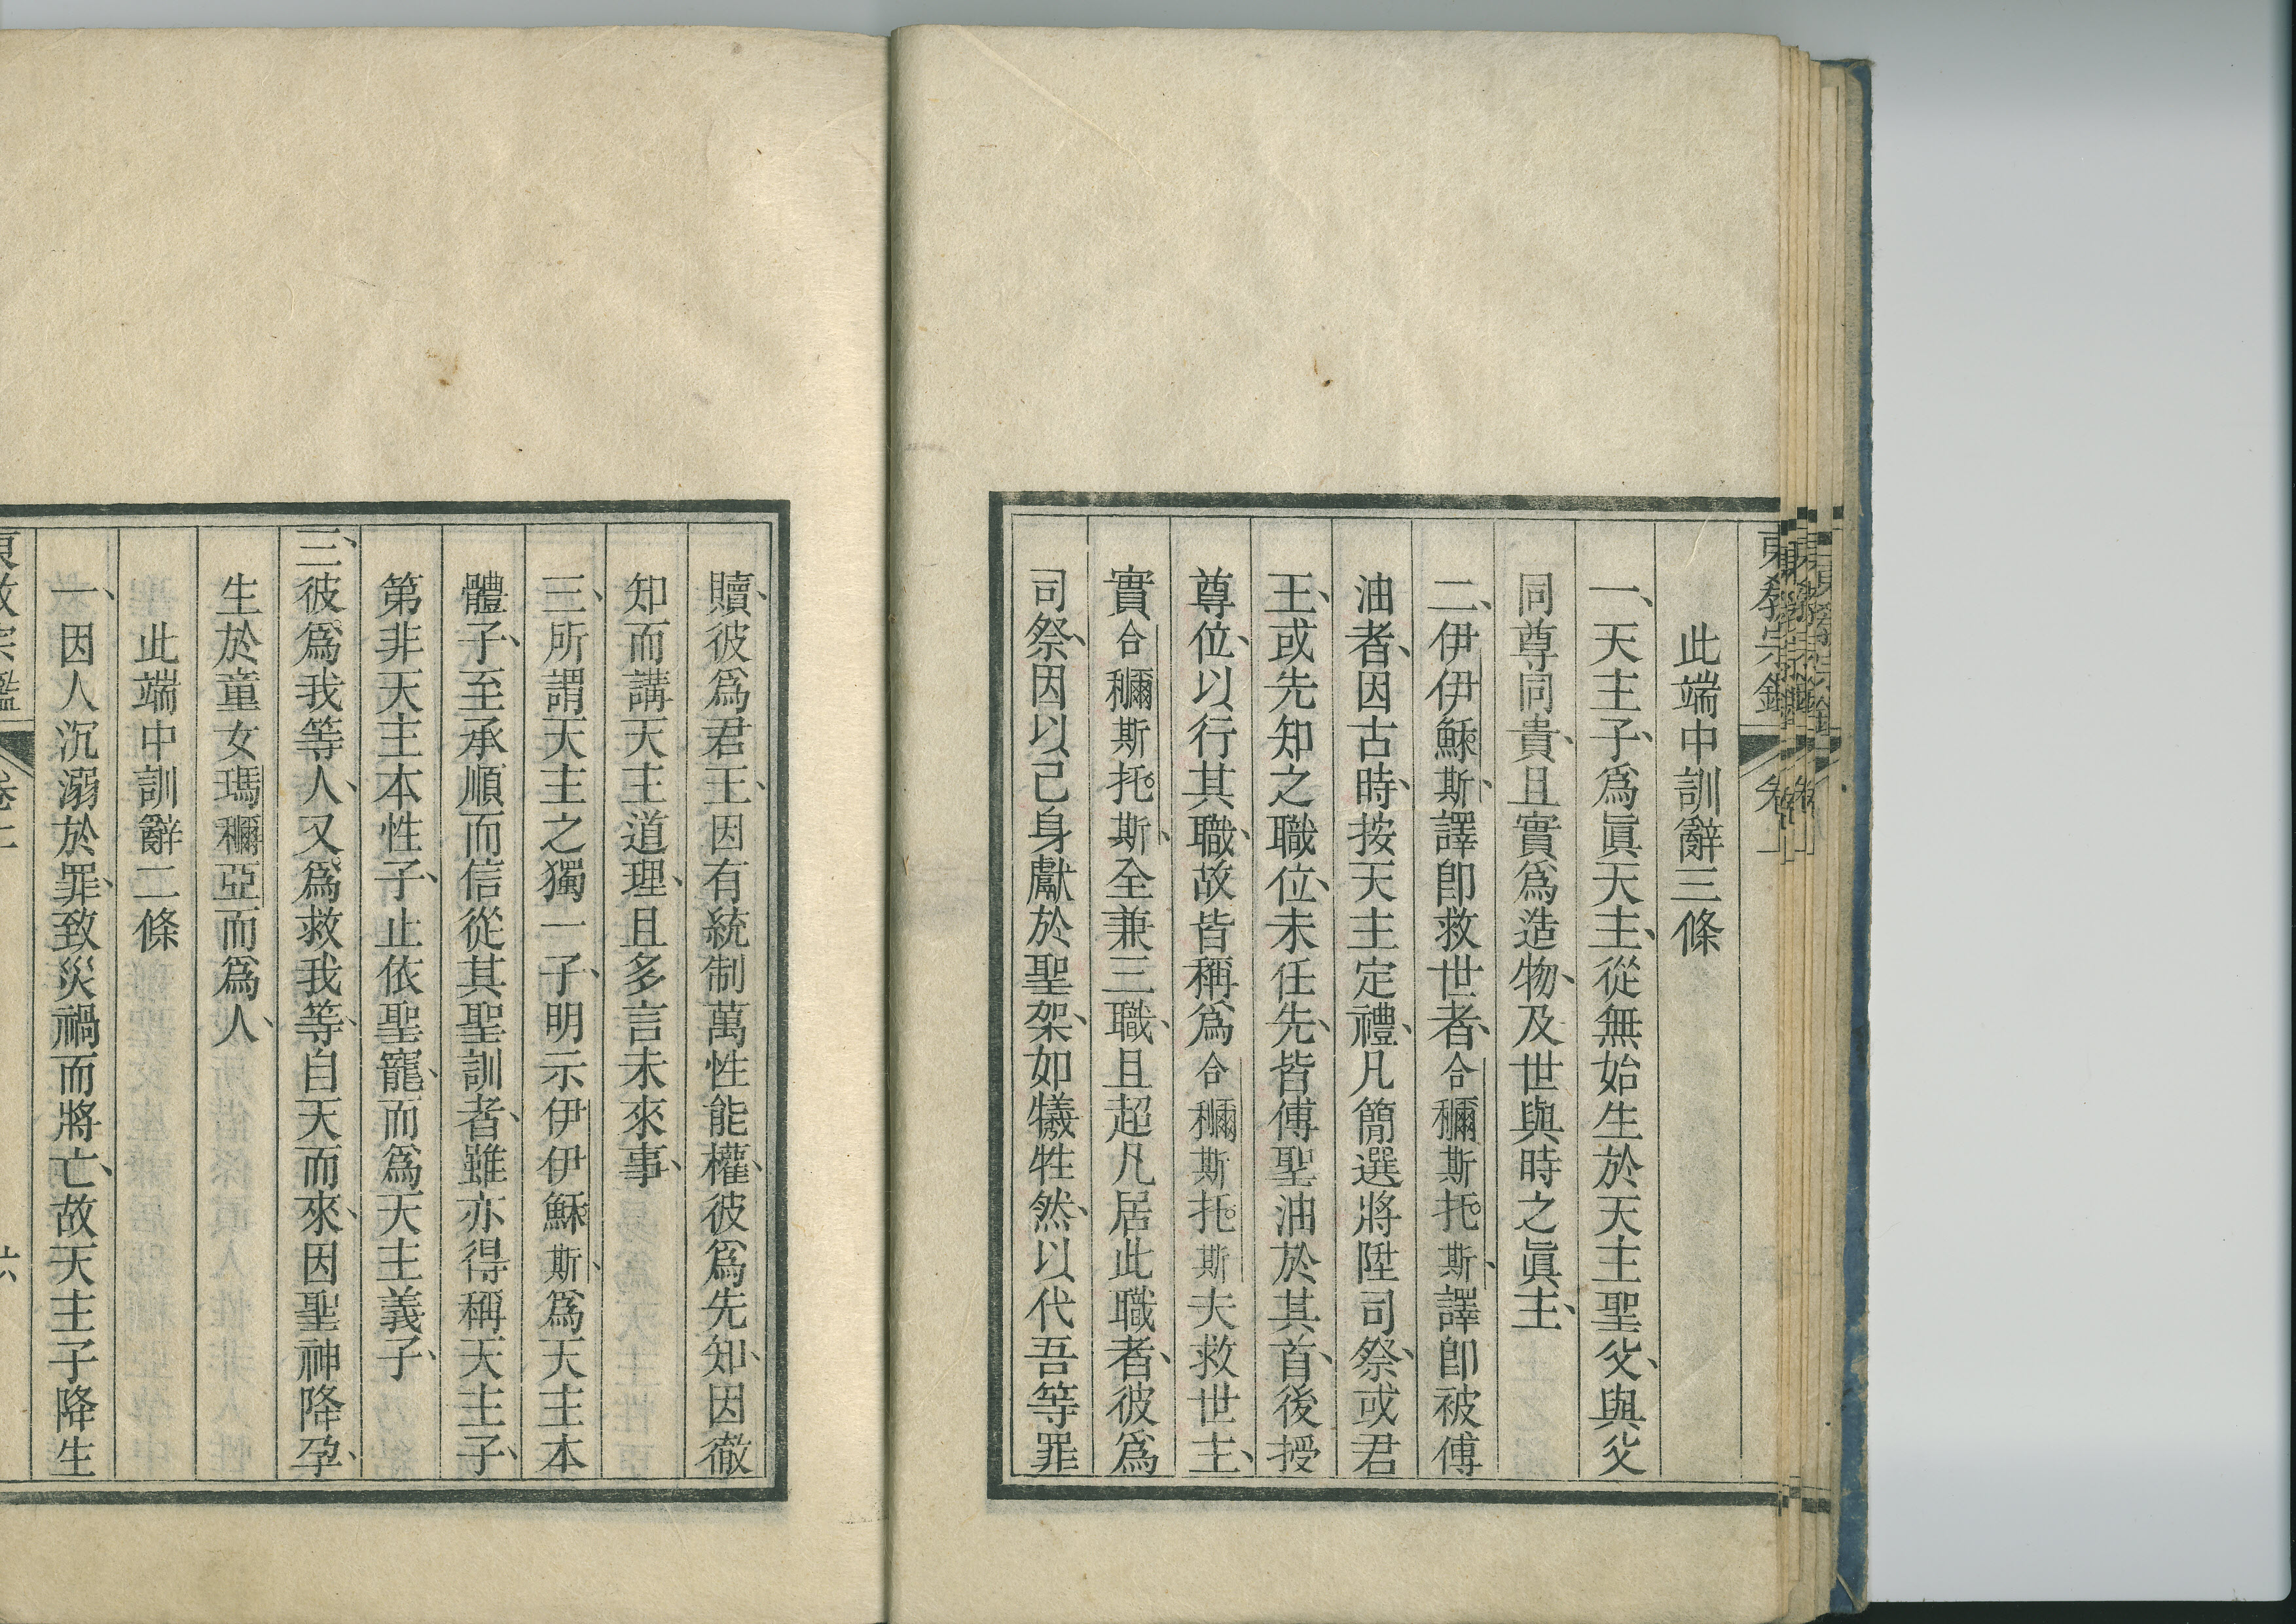 此端中訓辭三條
一、天主子、爲眞天主、從無始生於天主聖父、與父
同尊同貴、且實爲造物、及世與時之眞主、
二、伊伊穌斯、譯卽救世者、合穪斯托斯、譯卽被傅
油者、因古時、按天主定禮、凡簡選將陞司祭、或君
王、或先知之職位、未任先、皆傅聖油於其首、後授
尊位、以行其職、故皆稱爲合穪斯托斯夫救世主、
實合穪斯托斯、全兼三職、且超凡居此職者、彼爲
司祭、因以己身獻於聖架、如犧牲然、以代吾等罪
贖、彼爲君王、因有統制萬性能權、彼爲先知、因徹
知而講天主道理、且多言未來事、
三、所謂天主之獨一子、明示伊伊穌斯、爲天主本
體子、至承順而信從其聖訓者、雖亦得稱天主子、
第非天主本性子、止依聖寵、而爲天主義子、
三、彼爲我等人、又爲救我等、自天而來、因聖神降孕、
生於童女瑪穪亞而爲人、
此端中訓辭二條
一、因人沉溺於罪、致災禍而將亡、故天主子降生
六